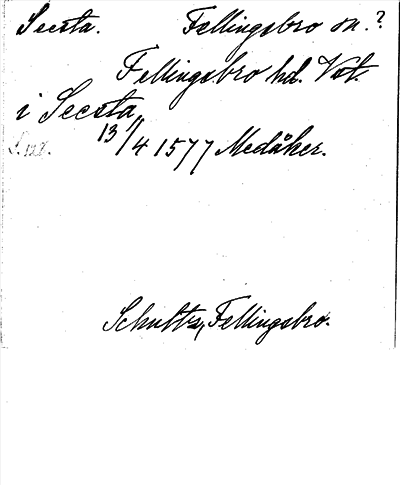 Seesta. Fellingsbro sn.?
Fellingsbro hd. Vstm.
i Seesta
S. 128. 13/4 1577 Medåker.
Schultz, Fellingsbro.